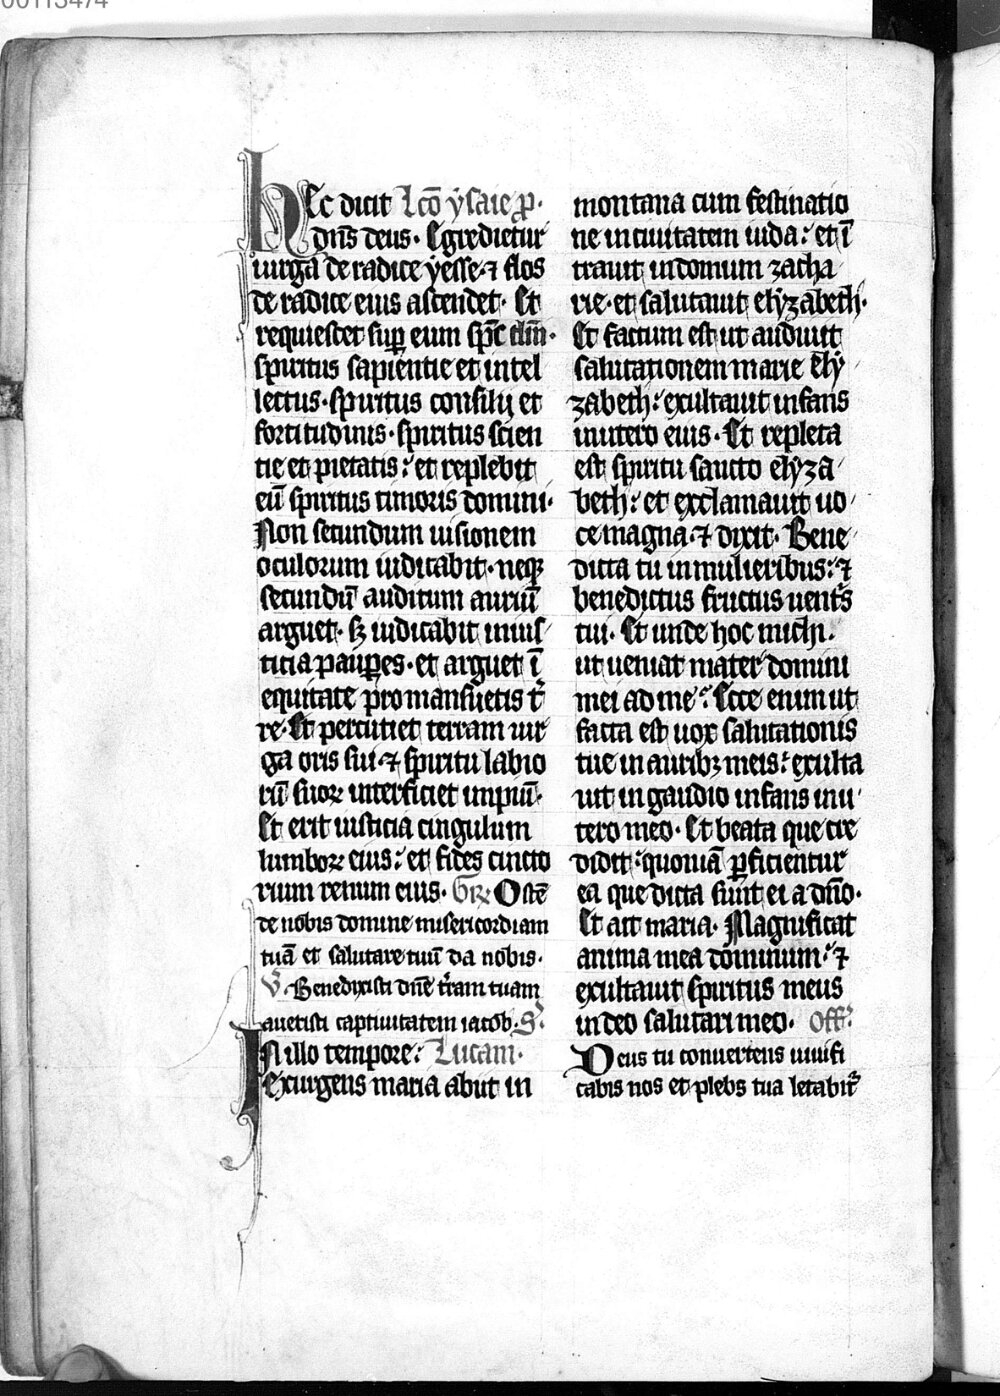 00113474
hEc dicit Lcō ysaie p̄.
dn̄s deus. Egredietur
uirga de radice yesse. ⁊ flos
de radice eius ascendet. Et
requiescet sup̱ eum sp̄c dn̄i.
spiritus sapientie et intel
lectus. spiritus consilij et
fortitudinis. spiritus scien
tie et pietatis: et replebit
eū spiritus timoris domini.
Non secundum uisionem
oculorum iudicabit. neqꝫ
secundū auditum auriū
arguet. sꝫ iudicabit in ius/
ticia paup̱es. et arguet ī
equitate pro mansuetis t̄
re. Et percutiet terram uir
ga oris sui. ⁊ spiritu labio
rū suoꝝ interficiet impiū.
Et erit iusticia cingulum
lumboꝝ eius: et fides cincto
rium renum eius. Gꝝ Ostē
de nobis domine misericordiam
tuā et salutare tuū da nobis.
V. Benedixisti dn̄e t̄ram tuam
auertisti captiuitatem iacob. S.
IN illo tempore: Lucam.
Exurgens maria abiit in
montana cum festinatio
ne in ciuitatem iuda: et ī
trauit in domum zacha/
rie. et salutauit elyzabeth.
Et factum est ut audiuit
salutationem marie ely/
zabeth: exultauit infans
in utero eius. Et repleta
est spiritu sancto elyza/
beth: et exclamauit uo/
ce magna. ⁊ dixit. Bene/
dicta tu in mulieribus: ⁊
benedictus fructus uent̄s
tui. Et unde hoc michi.
ut ueniat mater domini
mei ad me? Ecce enim ut
facta est uox salutationis
tue in auribꝫ meis: exulta
uit in gaudio infans in u/
tero meo. Et beata que cre
didit: quoniā p̱ficientur
ea que dicta sunt ei a dn̄o.
Et ait maria. Magnificat
anima mea dominum: ⁊
exultauit spiritus meus
in deo salutari meo. Off.
Deus tu conuertens uiuifi
cabis nos et plebs tua letabit᷑